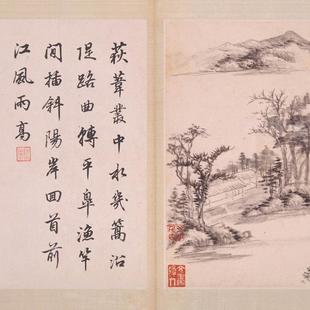 荻葦叢中水幾篙沿
隄路曲轉平皐漁竿
間插斜陽岸回首前
江風雨高